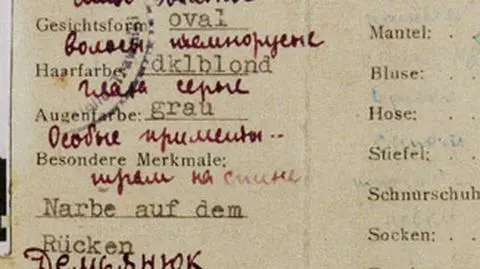 Gesichtsform: oval
волосы темнорусые
Haarfarbe: dklblond
глаза серые
Augenfarbe: grau
Особые приметы--
Besondere Merkmale:
шрам на спине
Narbe auf dem
Rücken
Демьянюк
Mantel: .
Bluse: . .
Hose: . .
Stiefel: .
Schnürschuh
Socken: .